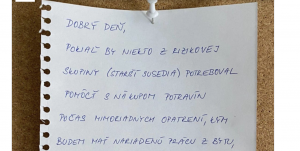 DOBRÝ DEŇ,
POKIAĽ BY NIEKTO Z RIZIKOVEJ
SKUPINY (STARŠÍ SUSEDIA) POTREBOVAL
POMÔCŤ S NÁKUPOM POTRAVÍN
POČAS MIMORIADNYCH OPATRENÍ, KÝM
BUDEM MAŤ NARIADENÚ PRÁCU Z BYTU,